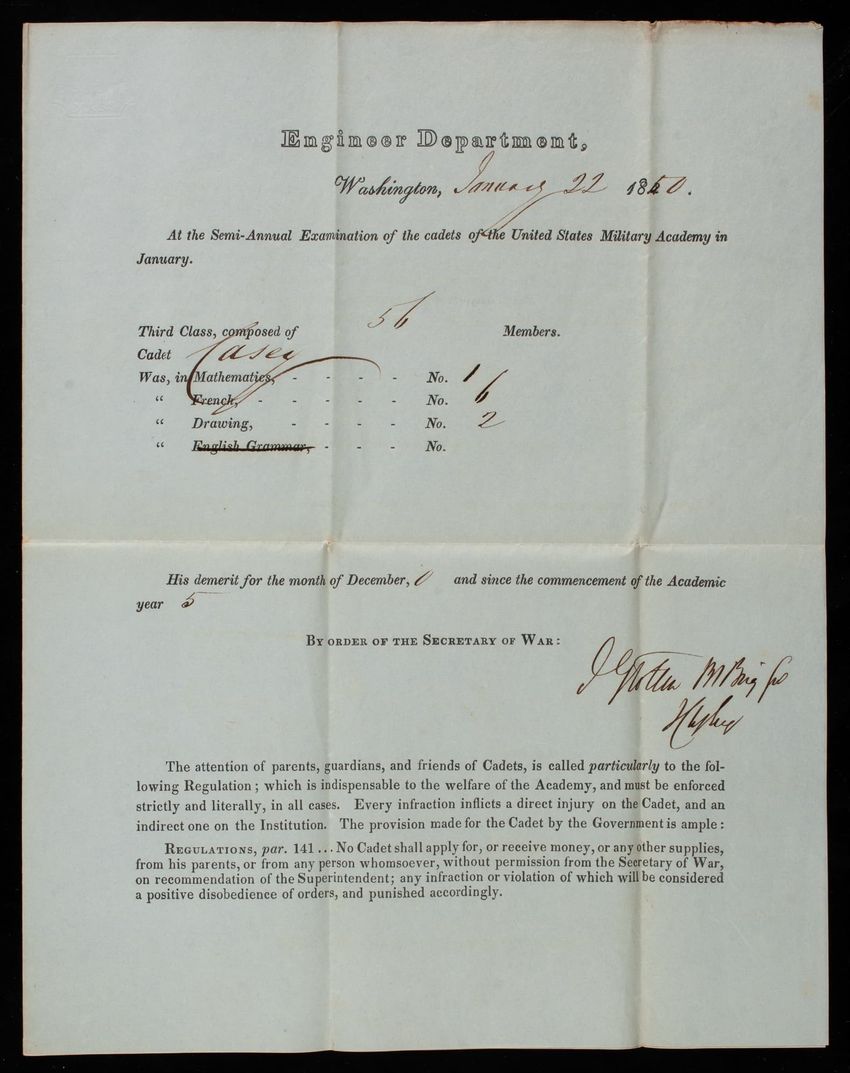 Engineer Department,
Washington, January 22 1850.
At the Semi-Annual Examination of the cadets of the United States Military Academy in
January.
Third Class, composed of 56 Members.
Cadet Casey
Was, in Mathematics, - - - - No. 1
“ French, - - - - - No. 6
“ Drawing, - - - - No. 2
“ English Grammar, - - - No.
His demerit for the month of December, 0 and since the commencement of the Academic
year 5
By order of the Secretary of War:
J G Totten Bt Brig Gn
The attention of parents, guardians, and friends of Cadets, is called particularly to the fol-
lowing Regulation; which is indispensable to the welfare of the Academy, and must be enforced
strictly and literally, in all cases. Every infraction inflicts a direct injury on the Cadet, and an
indirect one on the Institution. The provision made for the Cadet by the Government is ample:
Regulations, par. 141 ... No Cadet shall apply for, or receive money, or any other supplies,
from his parents, or from any person whomsoever, without permission from the Secretary of War,
on recommendation of the Superintendent; any infraction or violation of which will be considered
a positive disobedience of orders, and punished accordingly.